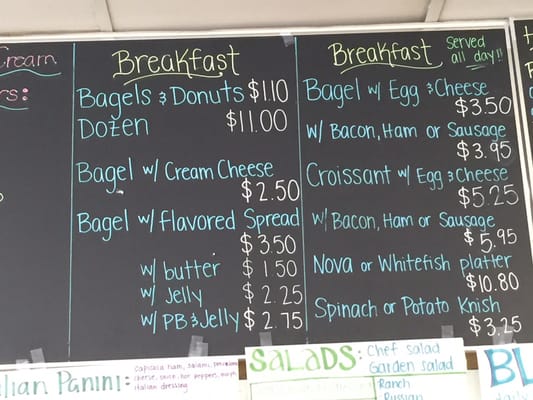 Cream
rs:
Breakfast
Bagels & Donuts $1.10
Dozen $11.00
Bagel w/ Cream Cheese
$2.50
Bagel w/ Flavored Spread
$3.50
w/ butter $1.50
w/ Jelly $2.25
w/ PB & Jelly $2.75
Breakfast
Served
all day!!
Bagel w/ Egg & Cheese
$3.50
w/ Bacon, Ham or Sausage
$3.95
Croissant w/ Egg & Cheese
$5.25
w/ Bacon, Ham or Sausage
$5.95
Nova or Whitefish platter
$10.80
Spinach or Potato Knish
$3.25
lian Panini:
Capicola ham, salami,
cheese, onion, hot peppers,
italian dressing
SALADS:
Chef salad
Garden salad
Ranch
Russian
BL
daily